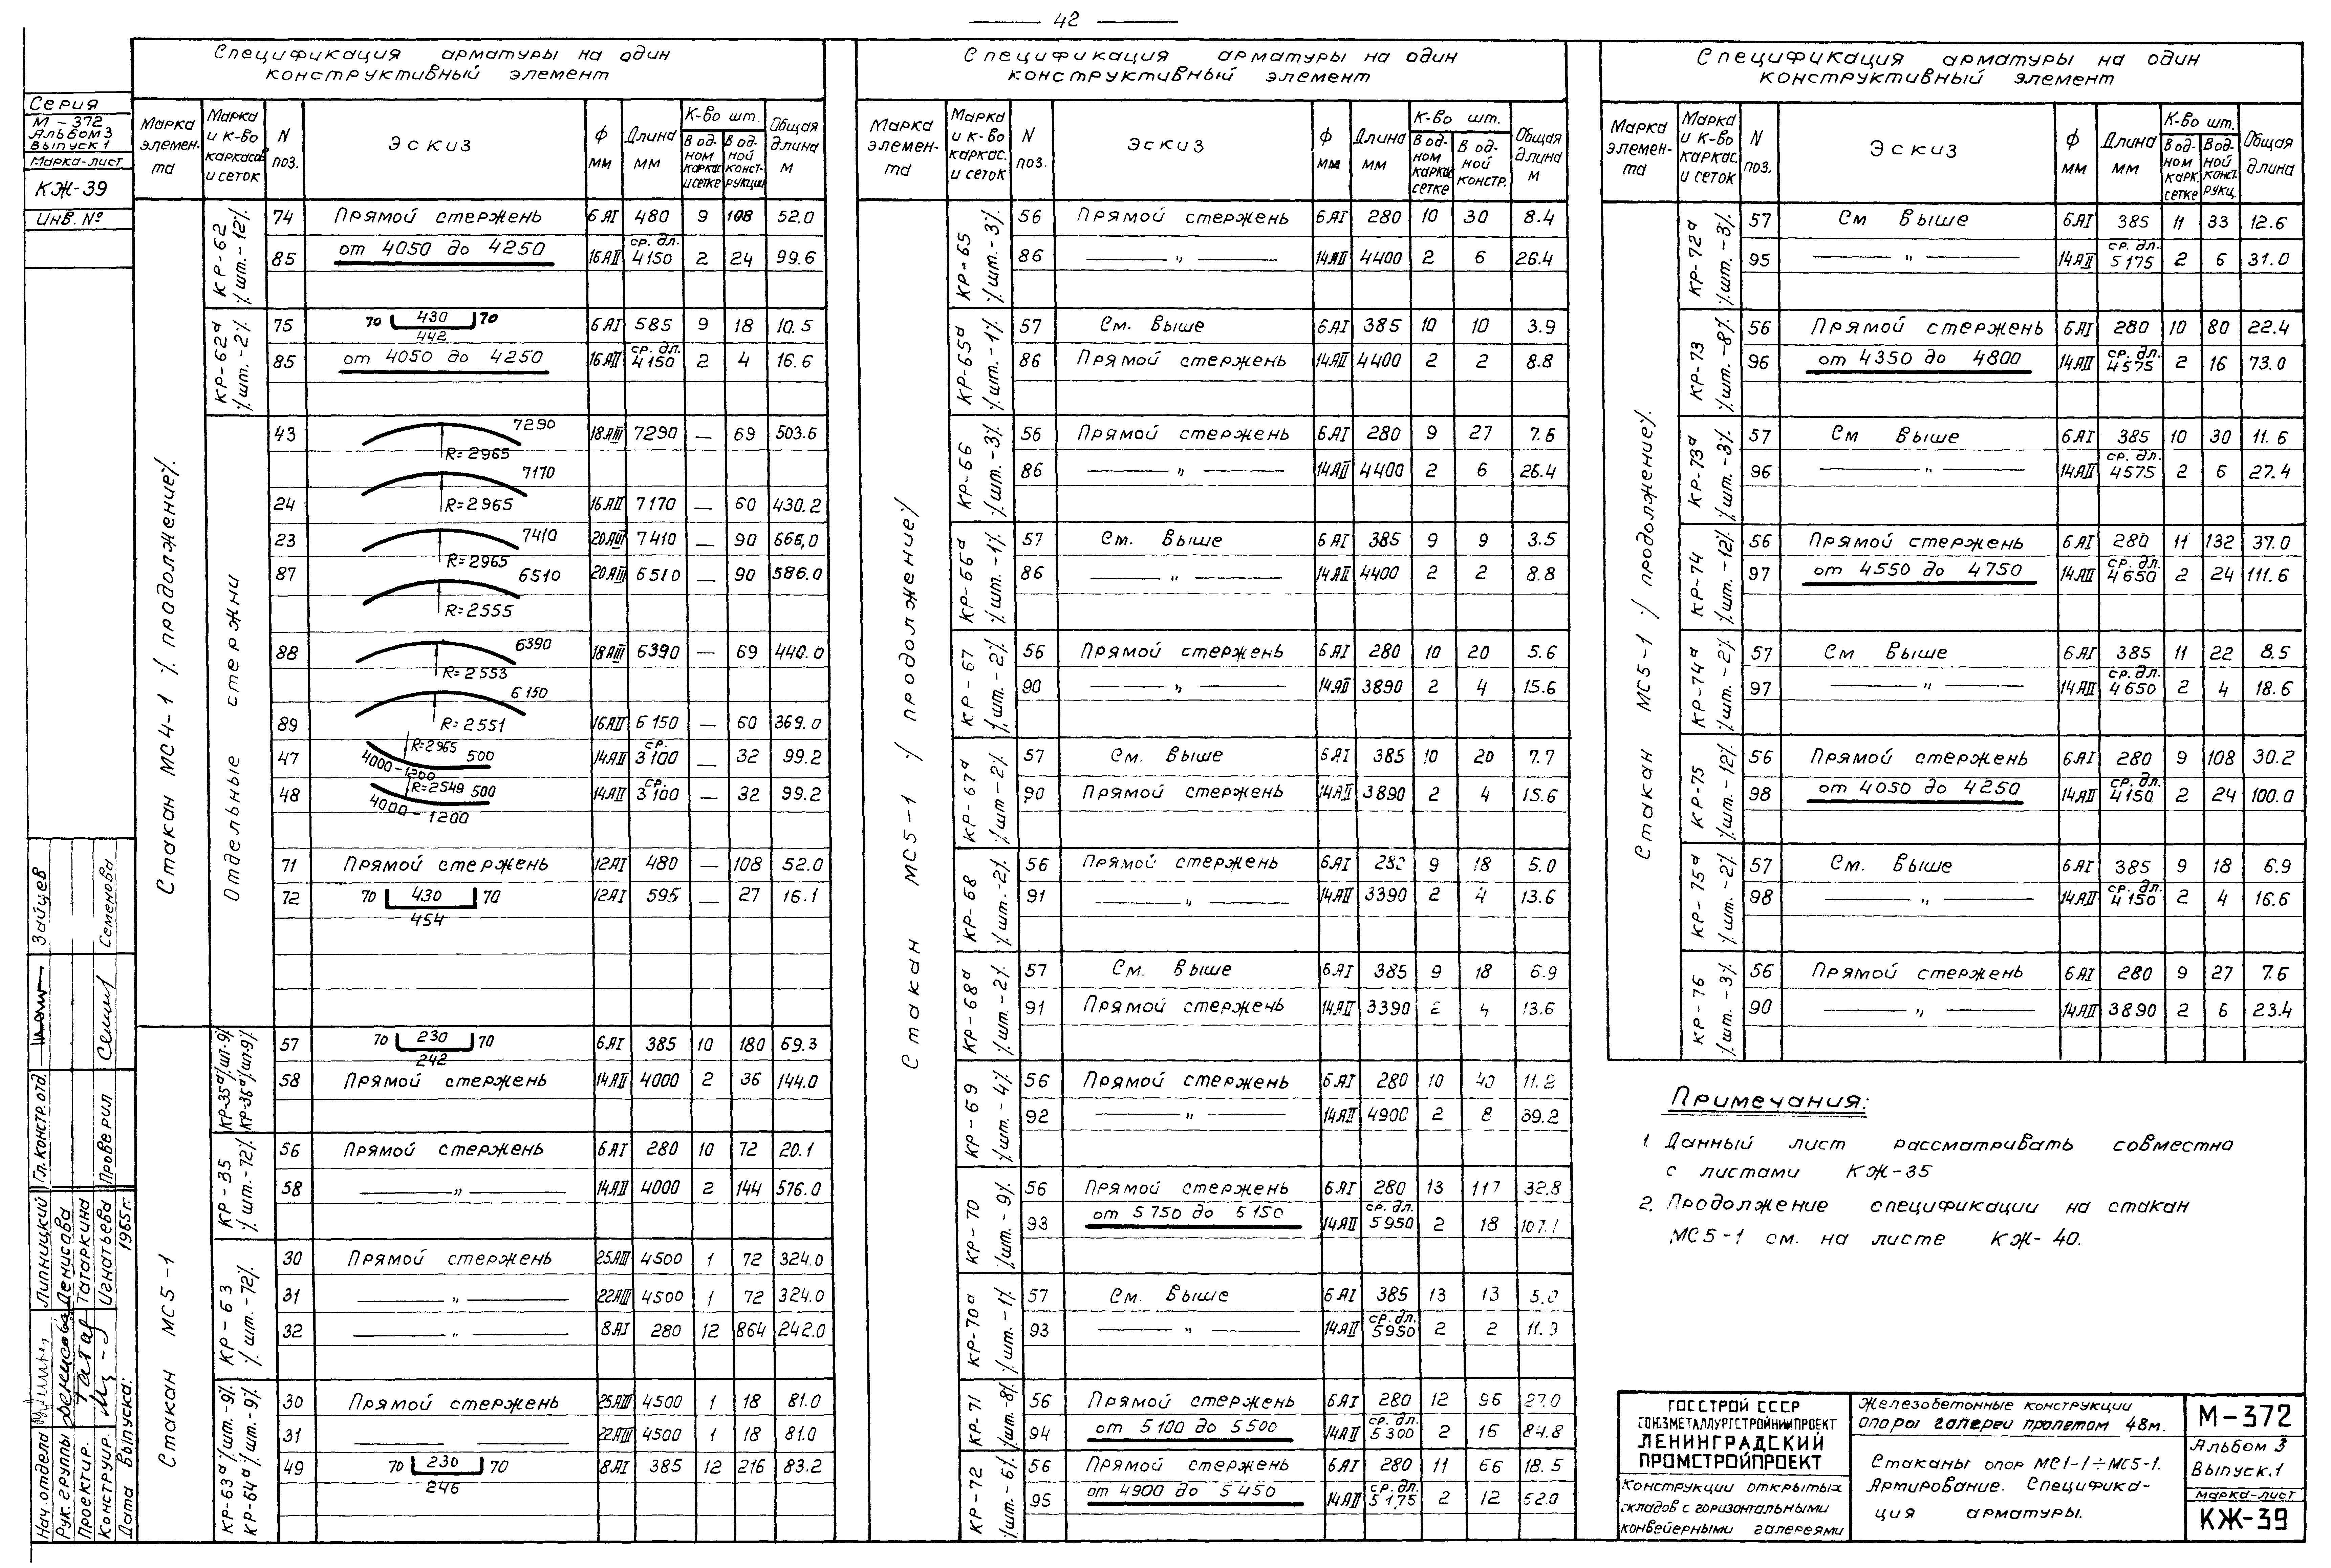 42
Серия
М-372
Альбом 3
Выпуск 1
Марка-лист
КЖ-39
Инв. №
Спецификация арматуры на один
конструктивный элемент
Марка элемен-та | Марка и к-во каркасов и сеток | N поз. | Эскиз | ф мм | Длина мм | К-во шт. | В од-ном каркас и сетке | В од-ной конст-рукции | Общая длина м
Стакан МС4-1 /продолжение/
КР-62 /шт.-12/
74 Прямой стержень 6АI 480 9 108 52.0
85 от 4050 до 4250 16АII ср. дл. 4150 2 24 99.6
КР-62а /шт.-2/
75 70 430 70 442 6АI 585 9 18 10.5
85 от 4050 до 4250 16АII ср. дл. 4150 2 4 16.6
Отдельные стержни
43 7290 R=2965 18АIII 7290 — 69 503.6
24 7170 R=2965 16АII 7170 — 60 430.2
23 7410 R=2965 20АIII 7410 — 90 666,0
87 6510 R=2555 20АIII 6510 — 90 586.0
88 6390 R=2553 18АIII 6390 — 69 440.0
89 6150 R=2551 16АII 6150 — 60 369.0
47 R=2965 500 4000-1200 14АII ср. 3100 — 32 99.2
48 R=2549 500 4000-1200 14АII ср. 3100 — 32 99.2
71 Прямой стержень 12АI 480 — 108 52.0
72 70 430 70 454 12АI 595 — 27 16.1
Стакан МС5-1
КР-35а /шт.-9/
КР-36а /шт.-9/
57 70 230 70 242 6АI 385 10 180 69.3
58 Прямой стержень 14АII 4000 2 36 144.0
КР-35 /шт.-72/
56 Прямой стержень 6АI 280 10 72 20.1
58 —"— 14АII 4000 2 144 576.0
КР-63 /шт.-72/
30 Прямой стержень 25АIII 4500 1 72 324.0
31 —"— 22АIII 4500 1 72 324.0
32 —"— 8АI 280 12 864 242.0
КР-63а /шт.-9/
КР-64а /шт.-9/
30 Прямой стержень 25АIII 4500 1 18 81.0
31 —— 22АIII 4500 1 18 81.0
49 70 230 70 246 8АI 385 12 216 83.2
Спецификация арматуры на один
конструктивный элемент
Марка элемен-та | Марка и к-во каркас. и сеток | N поз. | Эскиз | ф мм | Длина мм | К-во шт. | В од-ном каркас сетке | В од-ной констр. | Общая длина м
Стакан МС5-1 /продолжение/
КР-65 /шт.-3/
56 Прямой стержень 6АI 280 10 30 8.4
86 —"— 14АII 4400 2 6 26.4
КР-65а /шт.-1/
57 См. выше 6АI 385 10 10 3.9
86 Прямой стержень 14АII 4400 2 2 8.8
КР-66 /шт.-3/
56 Прямой стержень 6АI 280 9 27 7.6
86 —"— 14АII 4400 2 6 26.4
КР-66а /шт.-1/
57 См. выше 6АI 385 9 9 3.5
86 —"— 14АII 4400 2 2 8.8
КР-67 /шт.-2/
56 Прямой стержень 6АI 280 10 20 5.6
90 —"— 14АII 3890 2 4 15.6
КР-67а /шт-2/
57 См. выше 6АI 385 10 20 7.7
90 Прямой стержень 14АII 3890 2 4 15.6
КР-68 /шт.-2/
56 Прямой стержень 6АI 280 9 18 5.0
91 —"— 14АII 3390 2 4 13.6
КР-68а /шт.-2/
57 См. выше 6АI 385 9 18 6.9
91 Прямой стержень 14АII 3390 2 4 13.6
КР-69 /шт.-4/
56 Прямой стержень 6АI 280 10 40 11.2
92 —"— 14АII 4900 2 8 39.2
КР-70 /шт.-9/
56 Прямой стержень 6АI 280 13 117 32.8
93 от 5750 до 6150 14АII ср. дл. 5950 2 18 107.1
КР-70а /шт.-1/
57 См. выше 6АI 385 13 13 5.0
93 —"— 14АII ср. дл. 5950 2 2 11.9
КР-71 /шт.-8/
56 Прямой стержень 6АI 280 12 96 27.0
94 от 5100 до 5500 14АII ср. дл. 5300 2 16 84.8
КР-72 /шт.-6/
56 Прямой стержень 6АI 280 11 66 18.5
95 от 4900 до 5450 14АII ср. дл. 5175 2 12 62.0
Спецификация арматуры на один
конструктивный элемент
Марка элемен-та | Марка и к-во каркас. и сеток | N поз. | Эскиз | ф мм | Длина мм | К-во шт. | В од-ном карк. сетке | В од-ной конст. рукц. | Общая длина
Стакан МС5-1 /продолжение/
КР-72а /шт.-3/
57 См выше 6АI 385 11 33 12.6
95 —"— 14АII ср. дл. 5175 2 6 31.0
КР-73 /шт.-8/
56 Прямой стержень 6АI 280 10 80 22.4
96 от 4350 до 4800 14АII ср. дл. 4575 2 16 73.0
КР-73а /шт.-3/
57 См выше 6АI 385 10 30 11.6
96 —"— 14АII ср. дл. 4575 2 6 27.4
КР-74 /шт.-12/
56 Прямой стержень 6АI 280 11 132 37.0
97 от 4550 до 4750 14АII ср. дл. 4650 2 24 111.6
КР-74а /шт.-2/
57 См выше 6АI 385 11 22 8.5
97 —"— 14АII ср. дл. 4650 2 4 18.6
КР-75 /шт.-12/
56 Прямой стержень 6АI 280 9 108 30.2
98 от 4050 до 4250 14АII ср. дл. 4150 2 24 100.0
КР-75а /шт.-2/
57 См. выше 6АI 385 9 18 6.9
98 —"— 14АII ср. дл. 4150 2 4 16.6
КР-76 /шт.-3/
56 Прямой стержень 6АI 280 9 27 7.6
90 —"— 14АII 3890 2 6 23.4
Примечания:
1. Данный лист рассматривать совместно
с листами КЖ-35
2. Продолжение спецификации на стакан
МС5-1 см. на листе КЖ-40.
ГОССТРОЙ СССР
СОЮЗМЕТАЛЛУРГСТРОЙНИИПРОЕКТ
ЛЕНИНГРАДСКИЙ
ПРОМСТРОЙПРОЕКТ
Конструкции открытых
складов с горизонтальными
конвейерными галереями
Железобетонные конструкции
опоры галереи пролетом 48м.
Стаканы опор МС1-1÷МС5-1.
Армирование. Специфика-
ция арматуры.
М-372
Альбом 3
Выпуск.1
марка-лист
КЖ-39
Нач. отдела Липницкий
Рук. группы Денисова
Проектир. Татаркина
Конструир. Игнатьева
Дата выпуска: 1965г.
Гл. констр. отд. Зайцев
Проверил Семенова